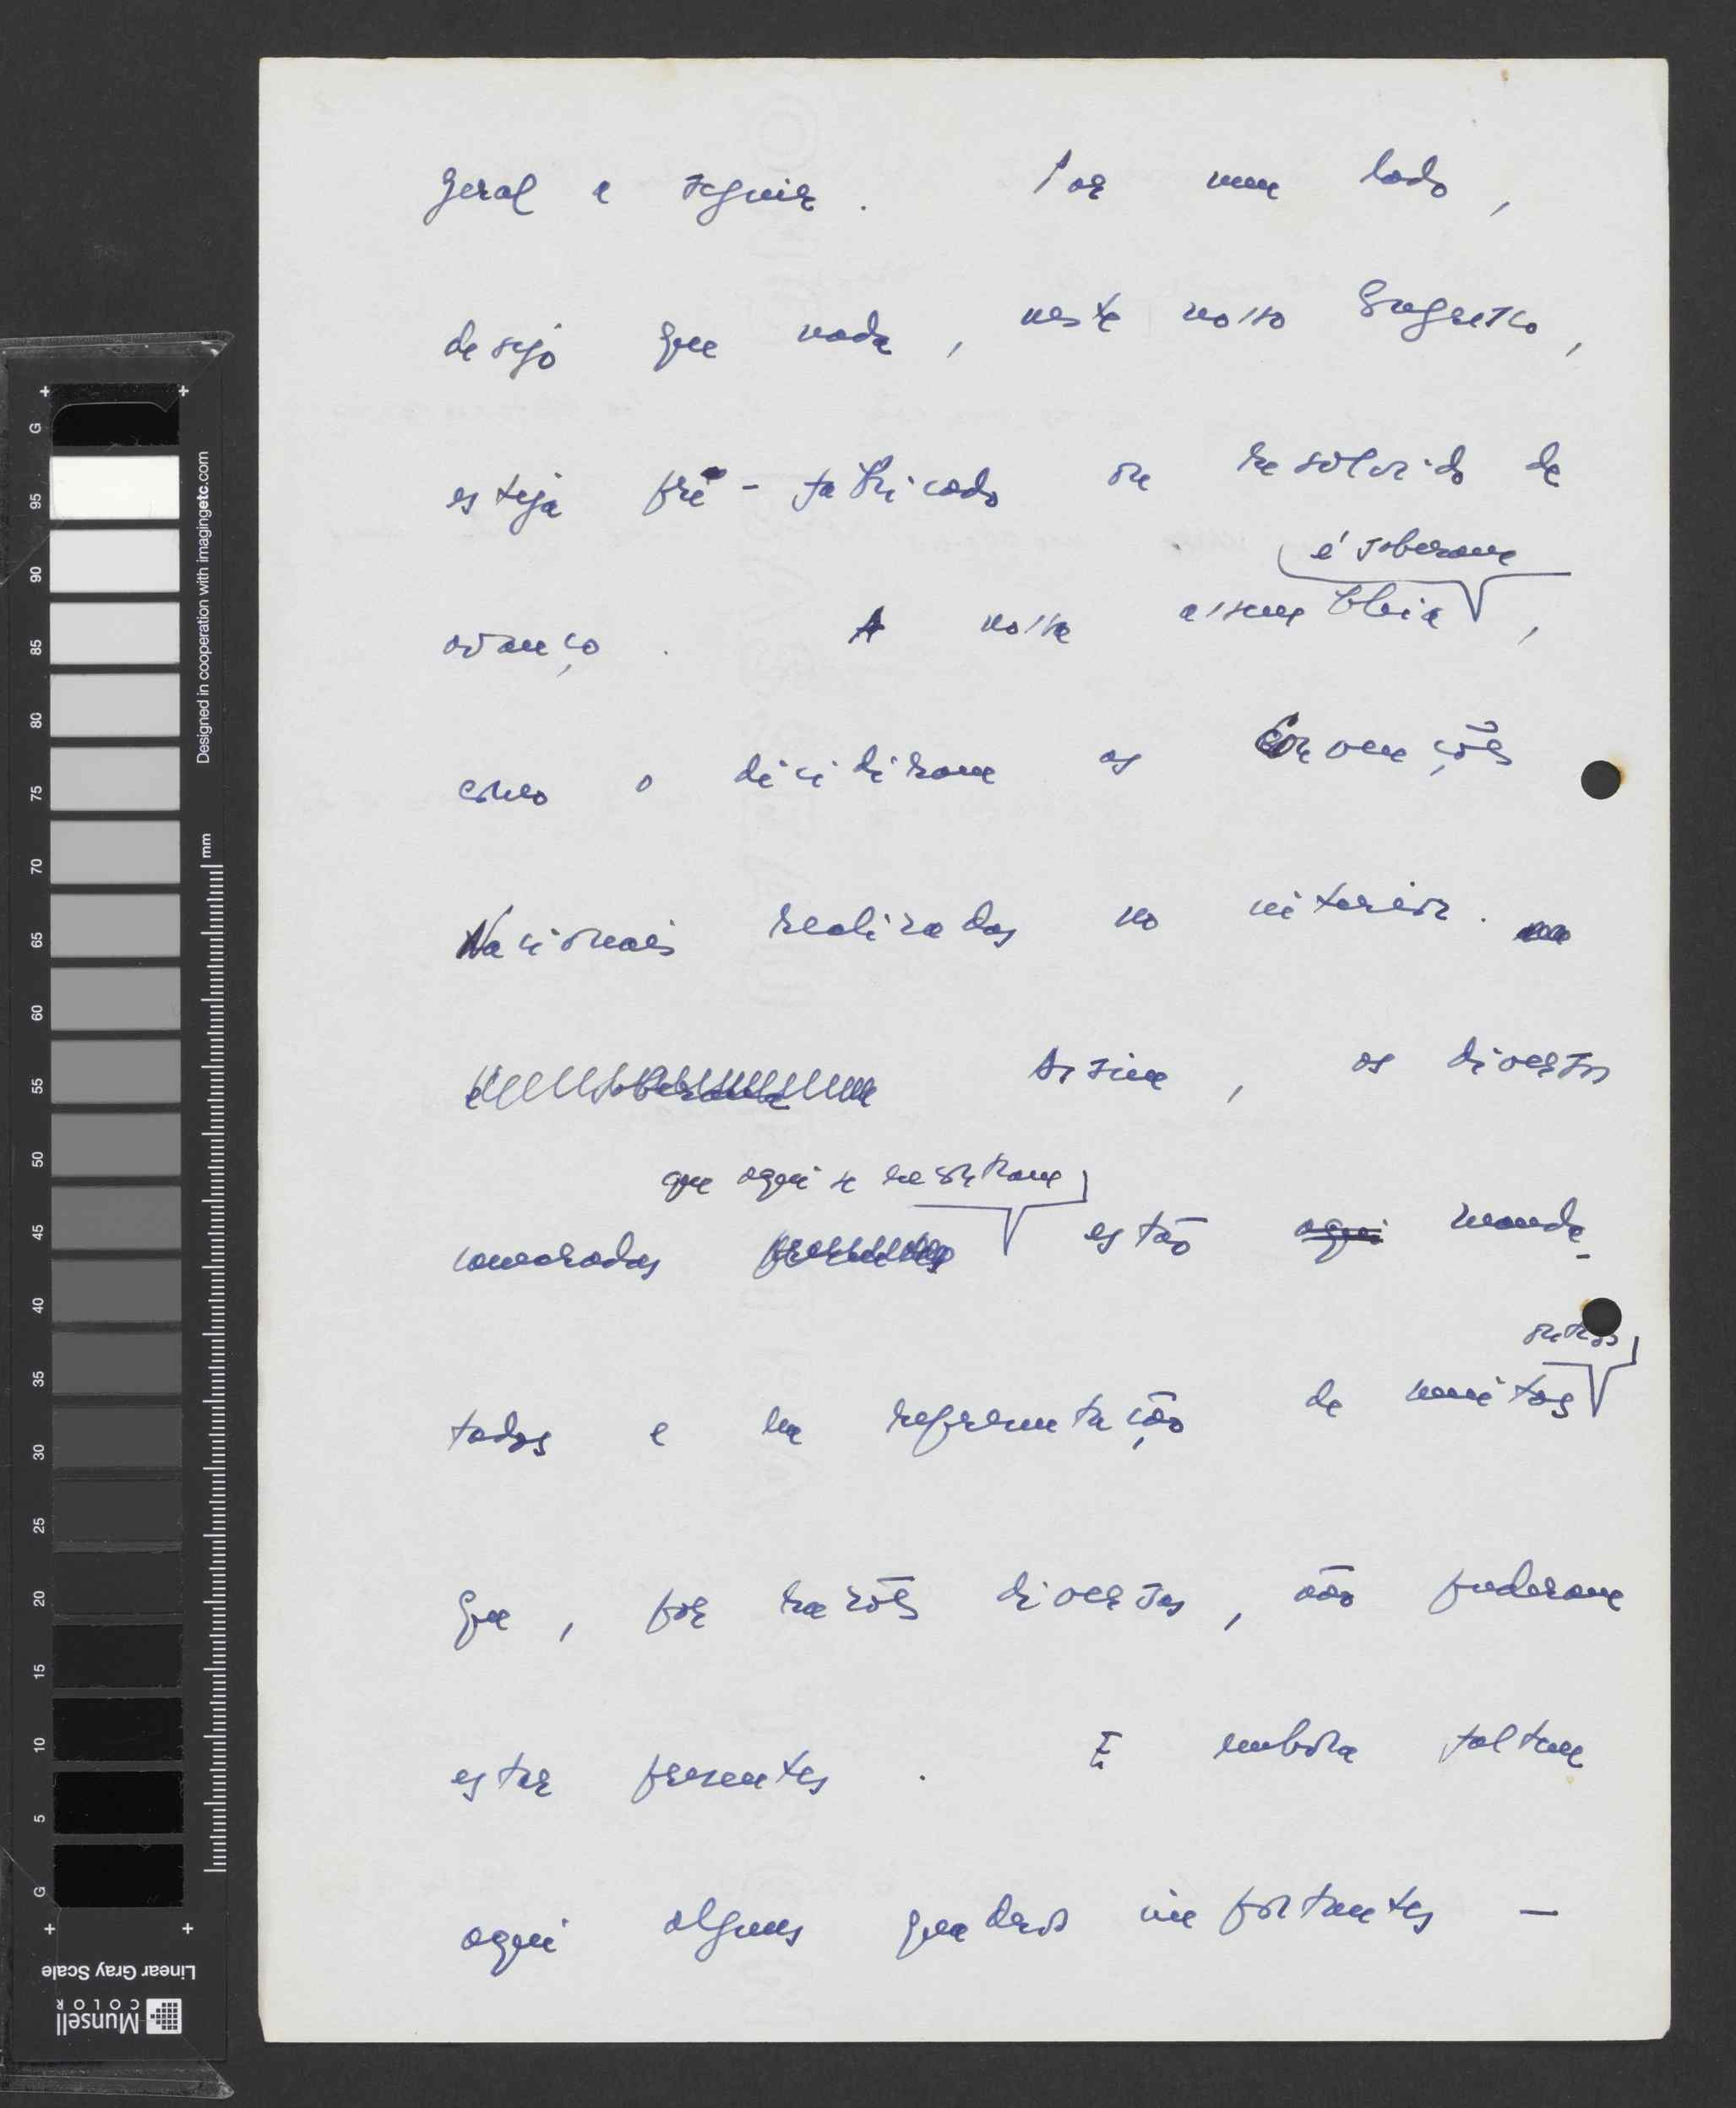 geral a seguir. Por um lado,
desejo que nada, neste nosso Congresso,
esteja pré-fabricado ou resolvido de
é soberana
avanço. A nossa assembleia,
como o decidiram as Convenções
Nacionais realizadas no interior.
é soberana Assim, os diversos
que aqui se reuniram
camaradas presentes estão aqui manda-
outros
tados e em representação de muitos
que, por razões diversas, não puderam
estar presentes. E embora faltem
aqui alguns quadros importantes —
G
95
90
85
80
75
70
65
60
55
50
45
40
35
30
25
20
15
10
5
G
mm
Designed in cooperation with imagingetc.com
Linear Gray Scale
Munsell
COLOR